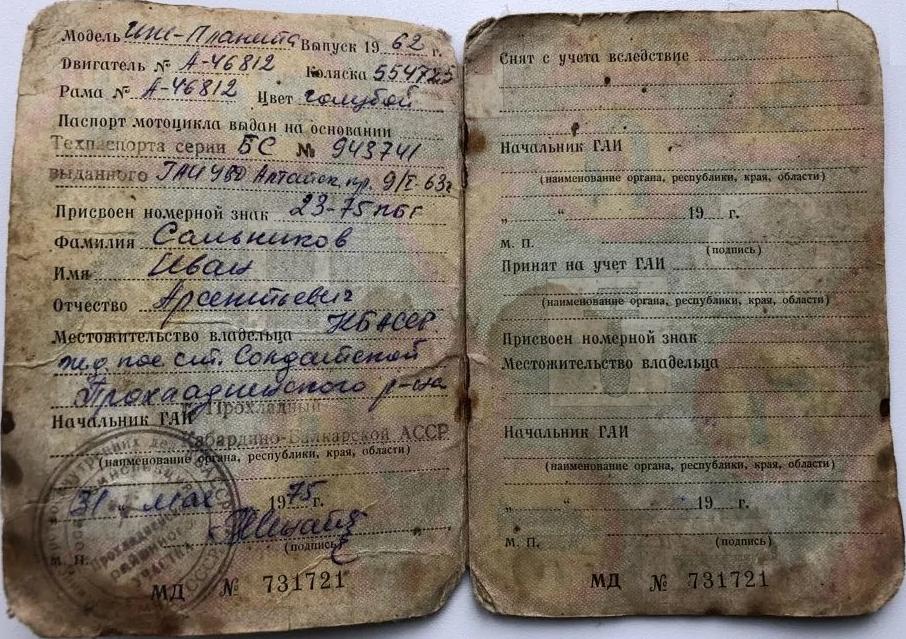 Модель Иж-Планета Выпуск 1962 г.
Двигатель № А-46812 Коляска 554725
Рама № А-46812 Цвет голубой
Паспорт мотоцикла выдан на основании
Техпаспорта серии БС № 943741
выданного ГАИ УВД Алтайск. пр. 9/I-63г
Присвоен номерной знак 23-75 КБГ
Фамилия Сальников
Имя Иван
Отчество Арсентьевич
Местожительство владельца КБАССР
ж.д пос ст. Солдатской
Прохладненского р-она
Начальник ГАИ г. Прохладный
Кабардино-Балкарской АССР
(наименование органа, республики, края, области)
„31“ мая 1975 г.
(подпись)
М. П.
МД № 731721
Снят с учета вследствие
Начальник ГАИ
(наименование органа, республики, края, области)
„ “ 19 г.
М. П.
(подпись)
Принят на учет ГАИ
(наименование органа, республики, края, области)
Присвоен номерной знак
Местожительство владельца
Начальник ГАИ
(наименование органа, республики, края, области)
„ “ 19 г.
М. П. (подпись)
МД № 731721